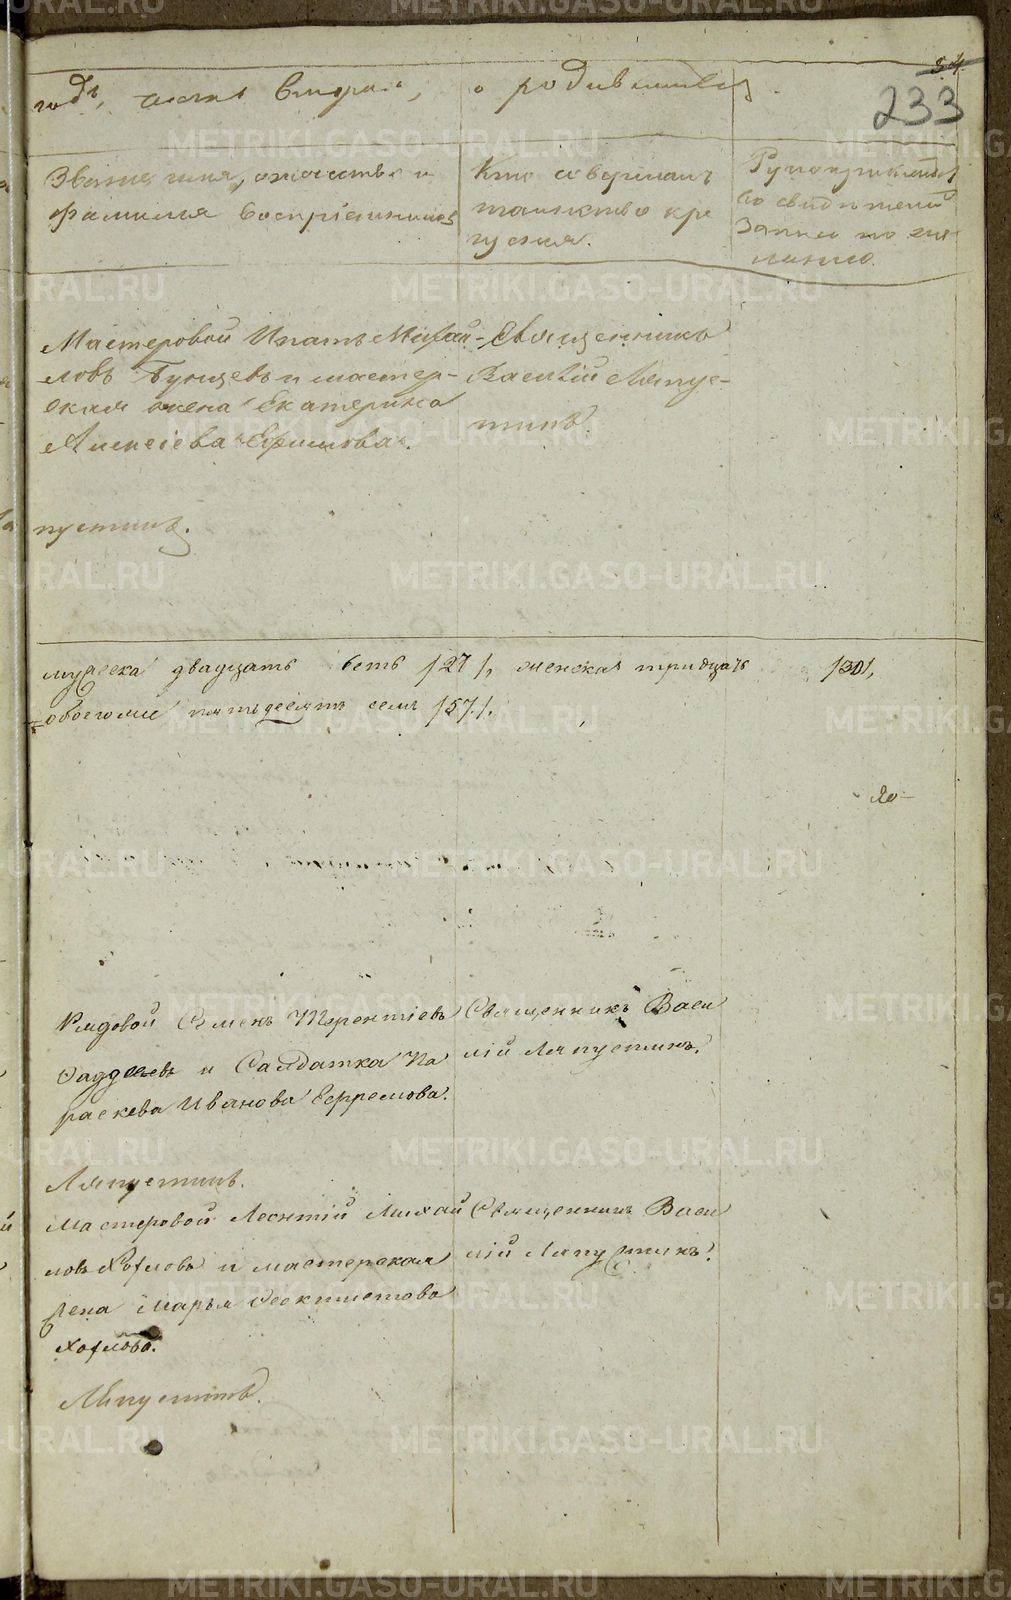 54
233
годъ, часть вторая, о родившихся.
Званіе, имя, отчество и фамилія воспріемниковъ
Кто совершалъ таинство крещенія.
Рукоприкладство свидѣтелей записи по желанію.
Мастеровой Ипатъ Михай-
ловъ и мастер-
ская жена Екатерина
Алексіева Ефимова.
Священникъ
Василій Ляпус-
тинъ.
пустинъ.
мужеска двадцать /27/, женска тридцать /30/,
обоего пятьдесятъ семь /57/.
Рядовой Семенъ Терентіевъ
Фаддеевъ и Салдатка Па
раскева Иванова Ефремова.
Священникъ Васи
лій Ляпустинъ.
Ляпустинъ.
Мастеровой Леонтій Михай
ловъ Хохловъ и мастерская
жена Марья Феоктистова
Хохлова.
Священникъ Васи
лій Ляпустинъ.
Ляпустинъ.
METRIKI.GASO-URAL.RU